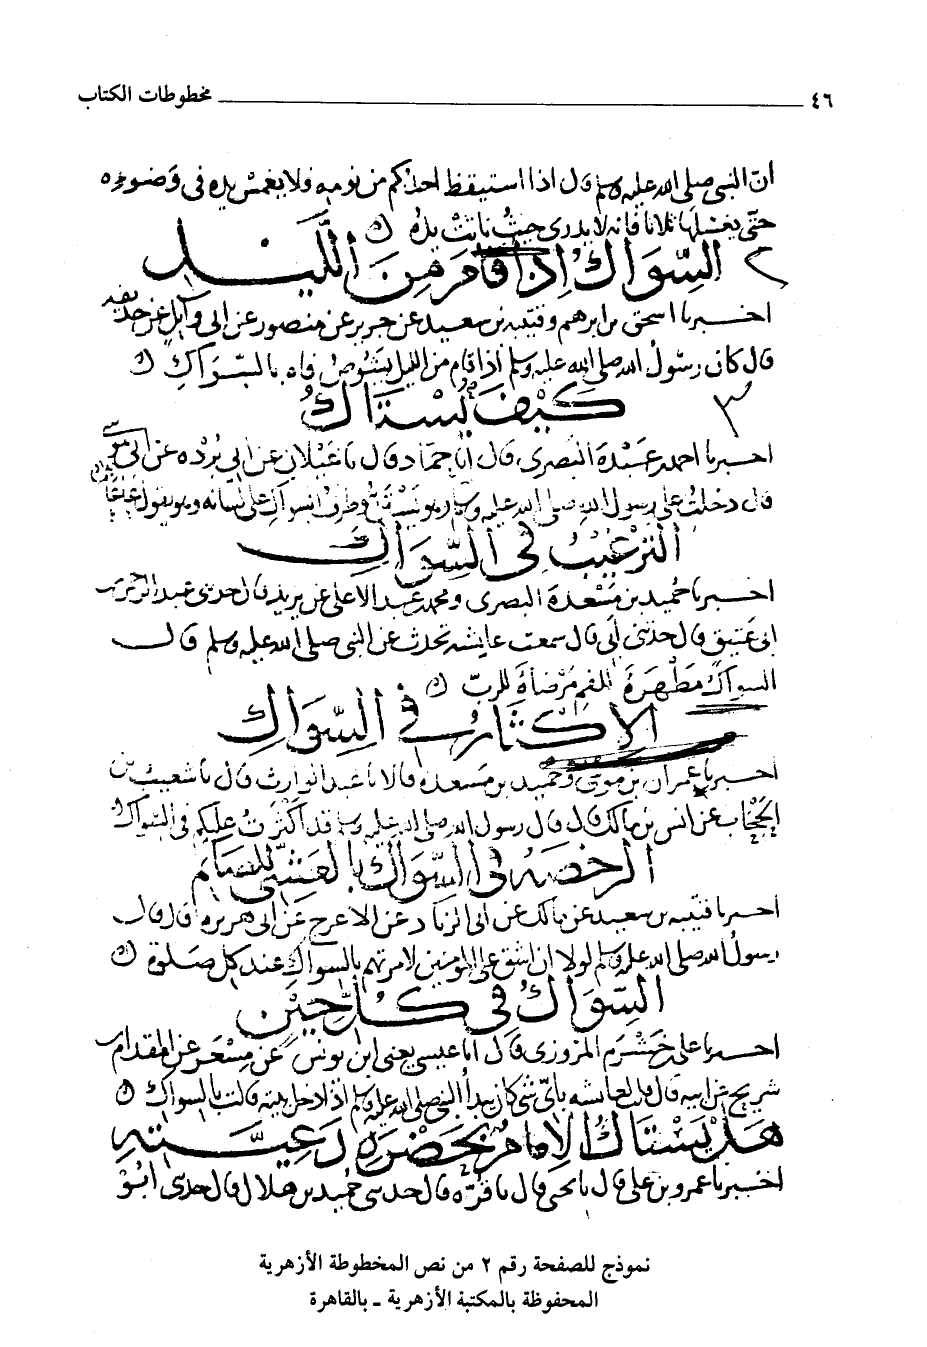 ٤٦ مخطوطات الكتاب
ان النبى صلى الله عليه وسلم قال اذا استيقظ احدكم من نومه فلا يغمس يده فى وضوءه
حتى يغسلها ثلاثا فانه لا يدرى حيث باتت يده
٢ السواك اذا قام من الليل
اخبرنا اسحق بن ابرهيم وقتيبه بن سعيد عن جرير عن منصور عن ابى وآبل عن حذيفه
قال كان رسول الله صلى الله عليه وسلم اذا قام من الليل يشوص فاه بالسواك
٣ كيف يستاك
اخبرنا احمد بن عبدة البصرى قال انا حماد قال نا غيلان عن ابى برده عن ابى موسى
قال دخلت على رسول الله صلى الله عليه وسلم وهو يستن وطرف السواك على لسانه وهو يقول عاعا
الترغيب فى السواك
اخبرنا حميد بن مسعدة البصرى ومحمد بن عبد الاعلى عن يزيد قال حدثنى عبد الرحمن بن
ابى عتيق قال حدثنى ابى قال سمعت عايشه تحدث عن النبى صلى الله عليه وسلم قال
السواك مطهرة للفم مرضاة للرب
الاكثار فى السواك
اخبرنا عمران بن موسى وحميد بن مسعدة قالا نا عبد الوارث قال نا شعيب بن
الحبحاب عن انس بن مالك قال قال رسول الله صلى الله عليه وسلم قد اكثرت عليكم فى السواك
الرخصه فى السواك بالعشى للصايم
اخبرنا قتيبه بن سعيد عن مالك عن ابى الزناد عن الاعرج عن ابى هريره ان
رسول الله صلى الله عليه وسلم لولا ان اشق على المومنين لامرتهم بالسواك عند كل صلوة
السواك فى كل حين
اخبرنا على بن خشرم المروزى قال انا عيسى يعنى ابن يونس عن مسعر عن المقدام بن
شريح عن ابيه قال قلت لعايشه باى شى كان يبدا النبى صلى الله عليه وسلم اذا دخل بيته قالت بالسواك
هل يستاك الامام بحضرة رعيته
اخبرنا عمرو بن على قال نا يحيى قال نا قرة قال حدثنى حميد بن هلال قال حدثنى ابو
نموذج للصفحة رقم ٢ من نص المخطوطة الأزهرية
المحفوظة بالمكتبة الأزهرية ـ بالقاهرة